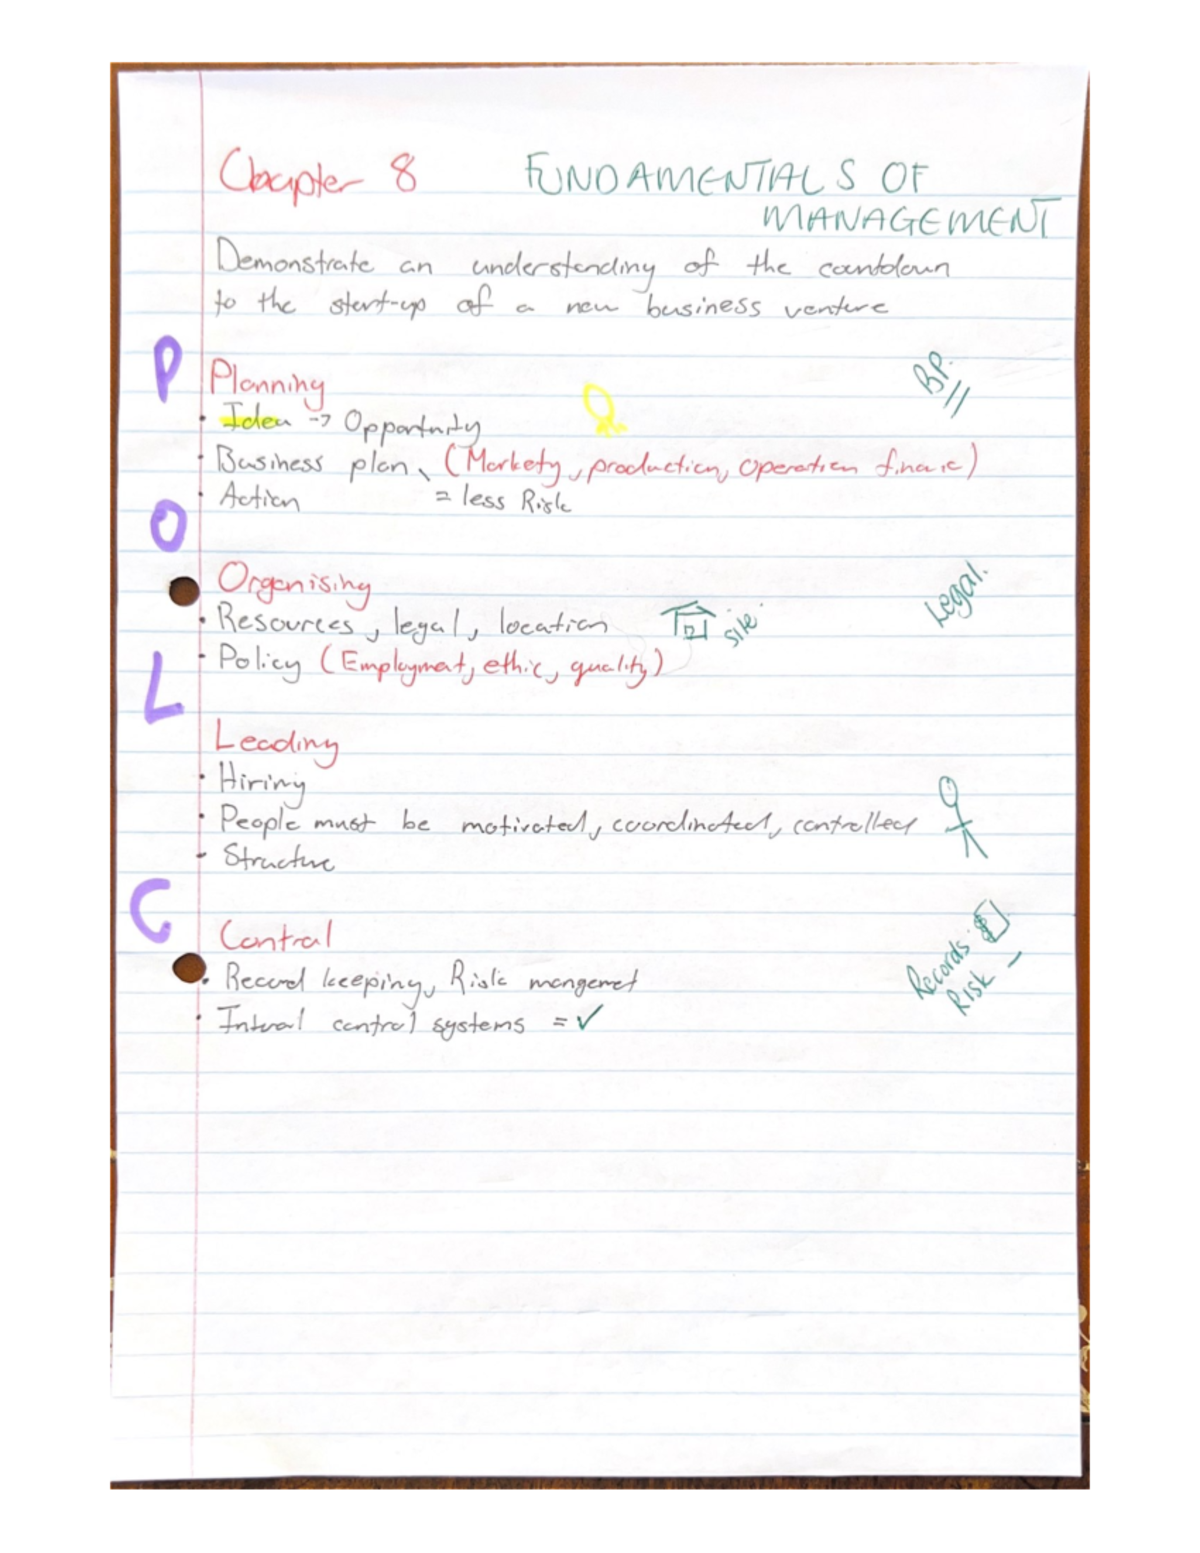 Chapter 8 FUNDAMENTALS OF
MANAGEMENT
Demonstrate an understanding of the countdown
to the start-up of a new business venture
P Planning
BP.
· Idea -> Opportunity
· Business plan, (Markety, production, operation finance)
· Action = less Risk
O
Organising
Legal.
· Resources, legal, location site.
· Policy (Employment, ethic, quality)
L
Leading
· Hiring
· People must be motivated, coordinated, controlled
- Structure
C
Control
Records. $
Risk
· Record keeping, Risk mangemet
· Internal control systems = ✓